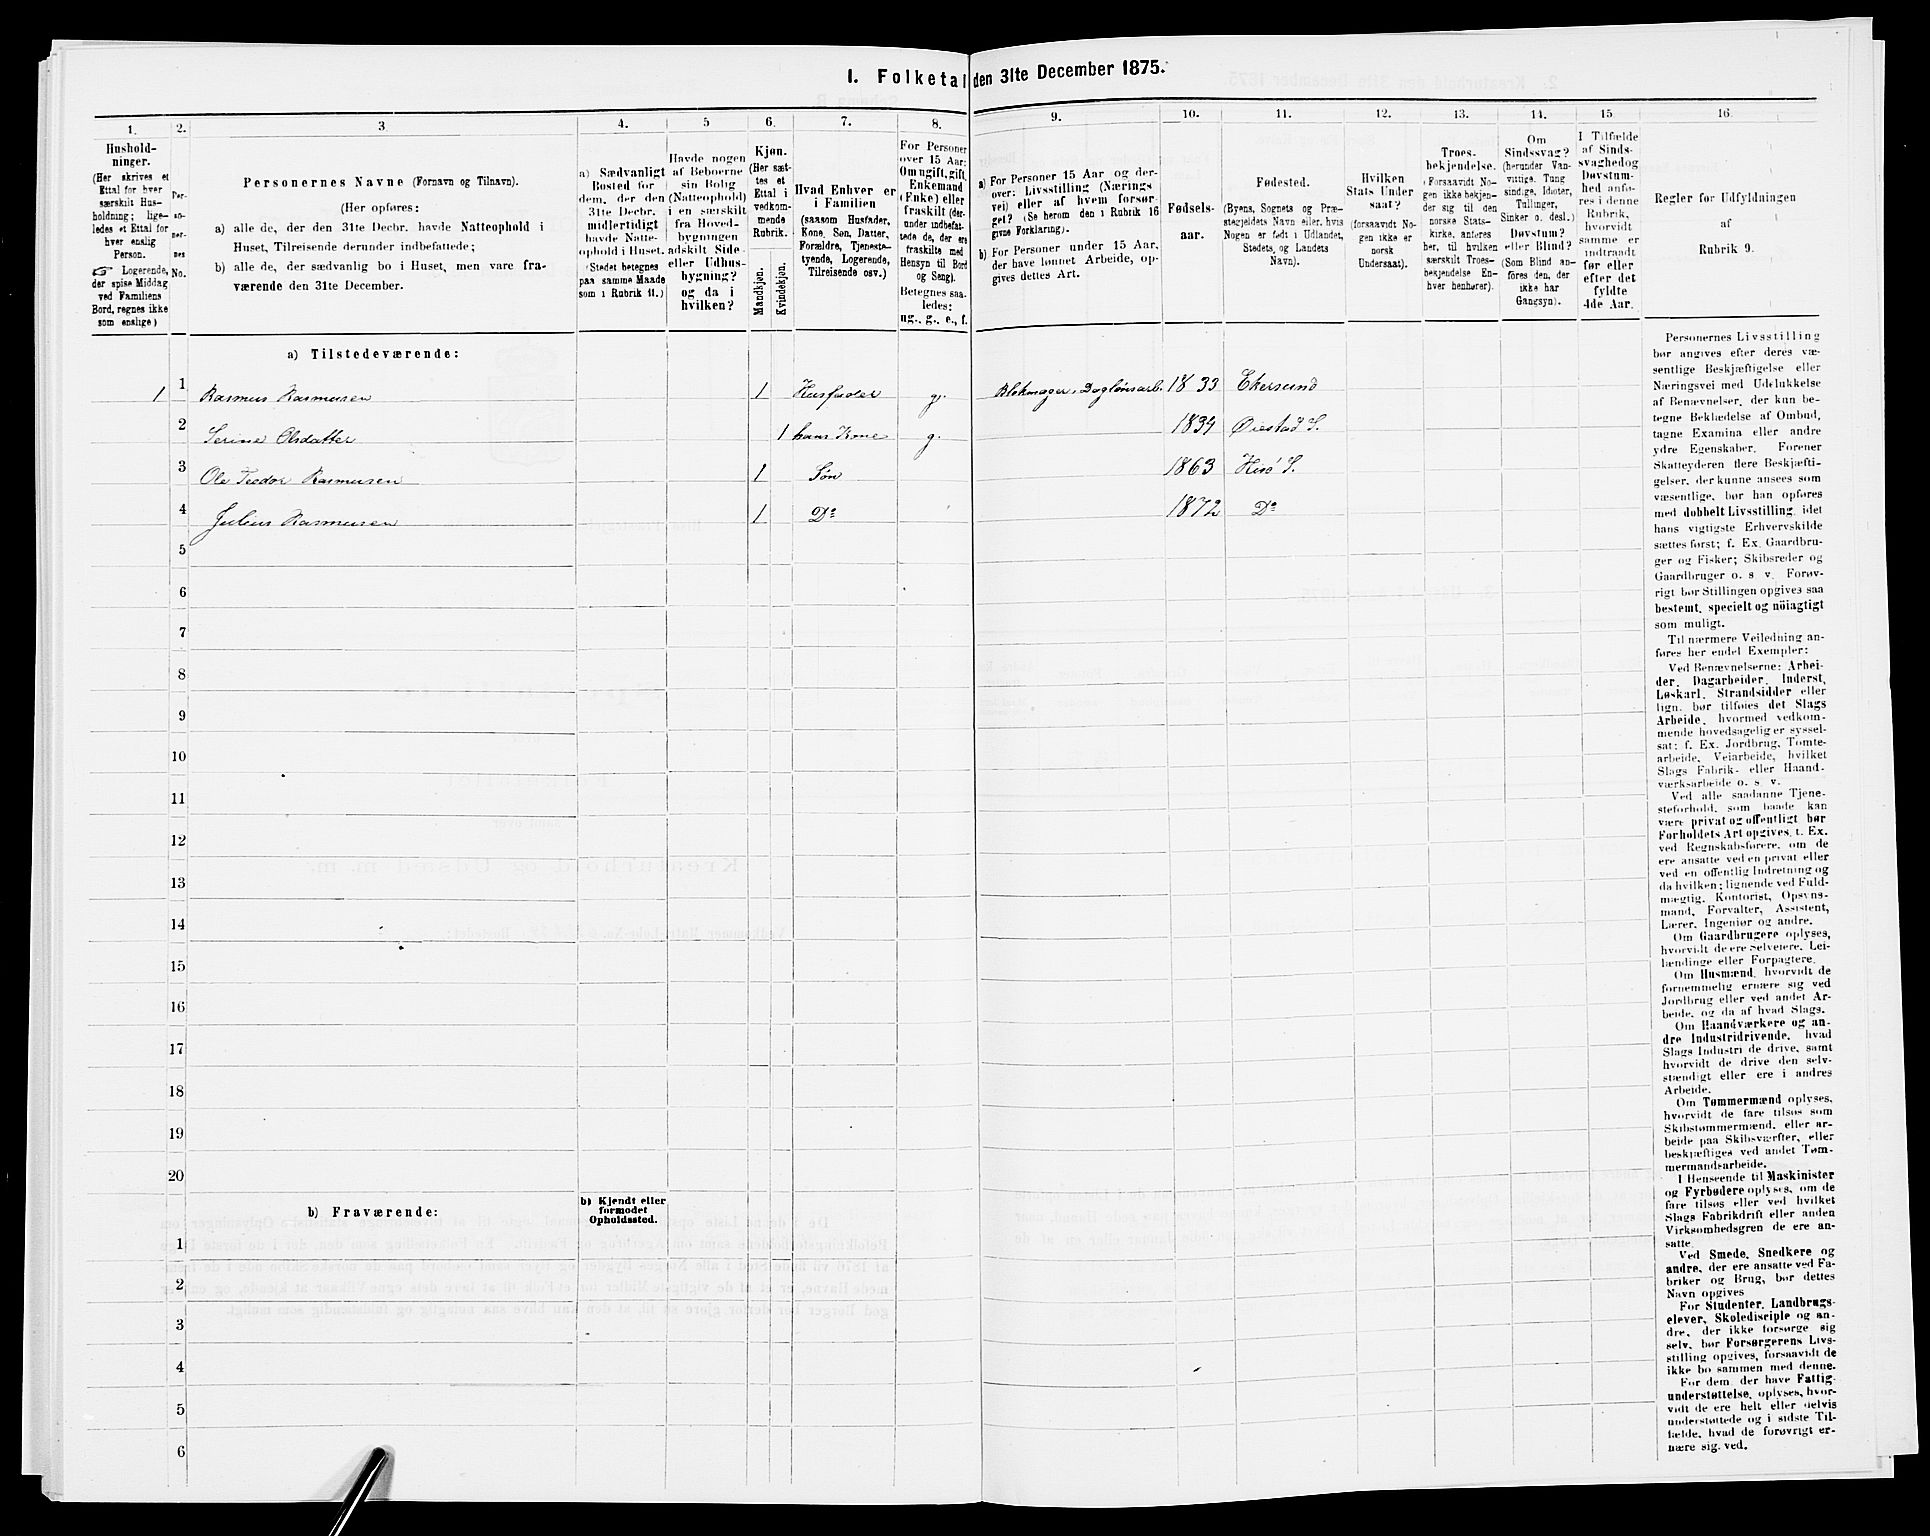 I. Folketal den 31te December 1875.
1.
Hushold-
ninger.
(Her skrives et
Ettal for hver
særskilt Hus-
holdning; lige-
ledes et Ettal for
hver enslig
Person.
☞ Logerende,
der spise Middag
ved Familiens
Bord, regnes ikke
som enslige)
2.
Per-
so-
ner-
nes
No.
3
Personernes Navne (Fornavn og Tilnavn).
(Her opføres:
a) alle de, der den 31te Decbr. havde Natteophold i
Huset, Tilreisende derunder indbefattede;
b) alle de, der sædvanlig bo i Huset, men vare fra-
værende den 31te December.
4.
a) Sædvanligt
Bosted for
dem, der den
31te Decbr.
midlertidigt
havde Natte-
ophold i Huset.
(Stedet betegnes
paa samme Maade
som i Rubrik 11.)
5
Havde nogen
af Beboerne
sin Bolig
(Natteophold)
i en særskilt
fra Hoved-
bygningen
adskilt Side-
eller Udhus-
bygning?
og da i
hvilken?
6.
Kjøn.
(Her sæt-
tes et
Ettal i
vedkom-
mende
Rubrik.
Mandkjøn.
Kvindekjøn.
7.
Hvad Enhver er
i Familien
(saasom Husfader,
Kone, Søn, Datter,
Forældre, Tjeneste-
tyende, Logerende,
Tilreisende osv.)
8.
For Personer
over 15 Aar:
Om ugift, gift,
Enkemand
(Enke) eller
fraskilt (der-
under indbefat-
tede de, der ere
fraskilte med
Hensyn til Bord
og Seng).
Betegnes saa-
ledes:
ug., g., e., f.
9.
a) For Personer 15 Aar og der-
over: Livsstilling (Nærings
vei) eller af hvem forsør-
get? (Se herom den i Rubrik 16
givne Forklaring).
b) For Personer under 15 Aar,
der have lønnet Arbeide, op-
gives dettes Art.
10.
Fødsels-
aar.
11.
Fødested.
(Byens, Sognets og Præ-
stegjeldets Navn eller, hvis
Nogen er født i Udlandet,
Stedets, og Landets
Navn).
12.
Hvilken
Stats Under
saat?
(forsaavidt No-
gen ikke er
norsk
Undersaat).
13.
Troes-
bekjendelse.
(Forsaavidt No-
gen ikke bekjen-
der sig til den
norske Stats-
kirke, anføres
her, til hvilken
særskilt Troes-
bekjendelse En-
hver henhører).
14.
Om
Sindssvag?
(herunder Van-
vittige, Tung
sindige, Idioter,
Tullinger,
Sinker o. desl.)
Døvstum?
eller Blind?
(Som Blind an-
føres den, der
ikke har
Gangsyn).
15.
I Tilfælde
af Sinds-
svaghed og
Døvstum-
hed anfø-
res i denne
Rubrik,
hvorvidt
samme er
indtraadt
før eller
efter det
fyldte
4de Aar.
16.
Regler for Udfyldningen
af
Rubrik 9.
a) Tilstedeværende:
1 1 Rasmus Rasmusen 1 Husfader g. Blokmager, Daglønsarb. 1833 Ekersund
2 Serine Olsdatter 1 hans Kone g. 1834 Øiestad S.
3 Ole Teodor Rasmusen 1 Søn 1863 Hisø S.
4 Julius Rasmusen 1 Do 1872 Do
5
6
7
8
9
10
11
12
13
14
15
16
17
18
19
20
b) Fraværende:
b) Kjendt eller
formodet
Opholdssted.
1
2
3
4
5
6
Personernes Livsstilling
bør angives efter deres væ-
sentlige Beskjæftigelse eller
Næringsvei med Udelukkelse
af Benævnelser, der kun be-
tegne Beklædelse af Ombud,
tagne Examina eller andre
ydre Egenskaber. Forener
Skatteyderen flere Beskjæfti-
gelser, der kunne ansees som
væsentlige, bør han opføres
med dobbelt Livsstilling, idet
hans vigtigste Erhvervskilde
sættes først; f. Ex. Gaardbru-
ger og Fisker; Skibsreder og
Gaardbruger o. s v. Forøv-
rigt bør Stillingen opgives saa
bestemt, specielt og nöiagtigt
som muligt.
Til nærmere Veiledning an-
føres her endel Exempler:
Ved Benævnelserne: Arbei-
der, Dagarbeider, Inderst,
Løskarl, Strandsidder eller
lign. bør tilføies det Slags
Arbeide, hvormed vedkom-
mende hovedsagelig er syssel-
sat; f. Ex. Jordbrug, Tomte-
arbeide, Veiarbeide, hvilket
Slags Fabrik- eller Haand-
værksarbeide o. s. v.
Ved alle saadanne Tjene-
steforhold, som baade kan
være privat og offentligt bør
Forholdets Art opgives, t. Ex.
ved Regnskabsførere, om de
ere ansatte ved en privat eller
ved en offentlig Indretning og
da hvilken; lignende ved Fuld-
mægtig, Kontorist, Opsyns-
mand, Forvalter, Assistent,
Lærer, Ingeniør og andre.
Om Gaardbrugere oplyses,
hvorvidt de ere Selveiere, Lei-
lændinge eller Forpagtere.
Om Husmænd, hvorvidt de
fornemmelig ernære sig ved
Jordbrug eller ved andet Ar-
beide, og da af hvad Slags.
Om Haandværkere og an-
dre Industridrivende, hvad
Slags Industri de drive, samt
hvorvidt de drive den selv-
stændigt eller ere i andres
Arbeide.
Om Tømmermænd oplyses,
hvorvidt de fare tilsøs som
Skibstømmermænd, eller ar-
beide paa Skibsværfter, eller
beskjæftiges ved andet Tøm-
mermandsarbeide.
I Henseende til Maskinister
og Fyrbødere oplyses, om de
fare tilsøs eller ved hvilket
Slags Fabrikdrift eller anden
Virksomhedsgren de ere an-
satte.
Ved Smede, Snedkere og
andre, der ere ansatte ved Fa-
briker og Brug, bør dettes
Navn opgives
For Studenter, Landbrugs-
elever, Skoledisciple og an-
dre, der ikke forsørge sig
selv, bør Forsørgerens Livs-
stilling opgives, forsaavidt de
ikke bo sammen med denne.
For dem, der have Fattig-
understøttelse, oplyses, hvor-
vidt de ere helt eller delvis
understøttede og i sidste Til-
fælde, hvad de forøvrigt er-
nære sig ved.